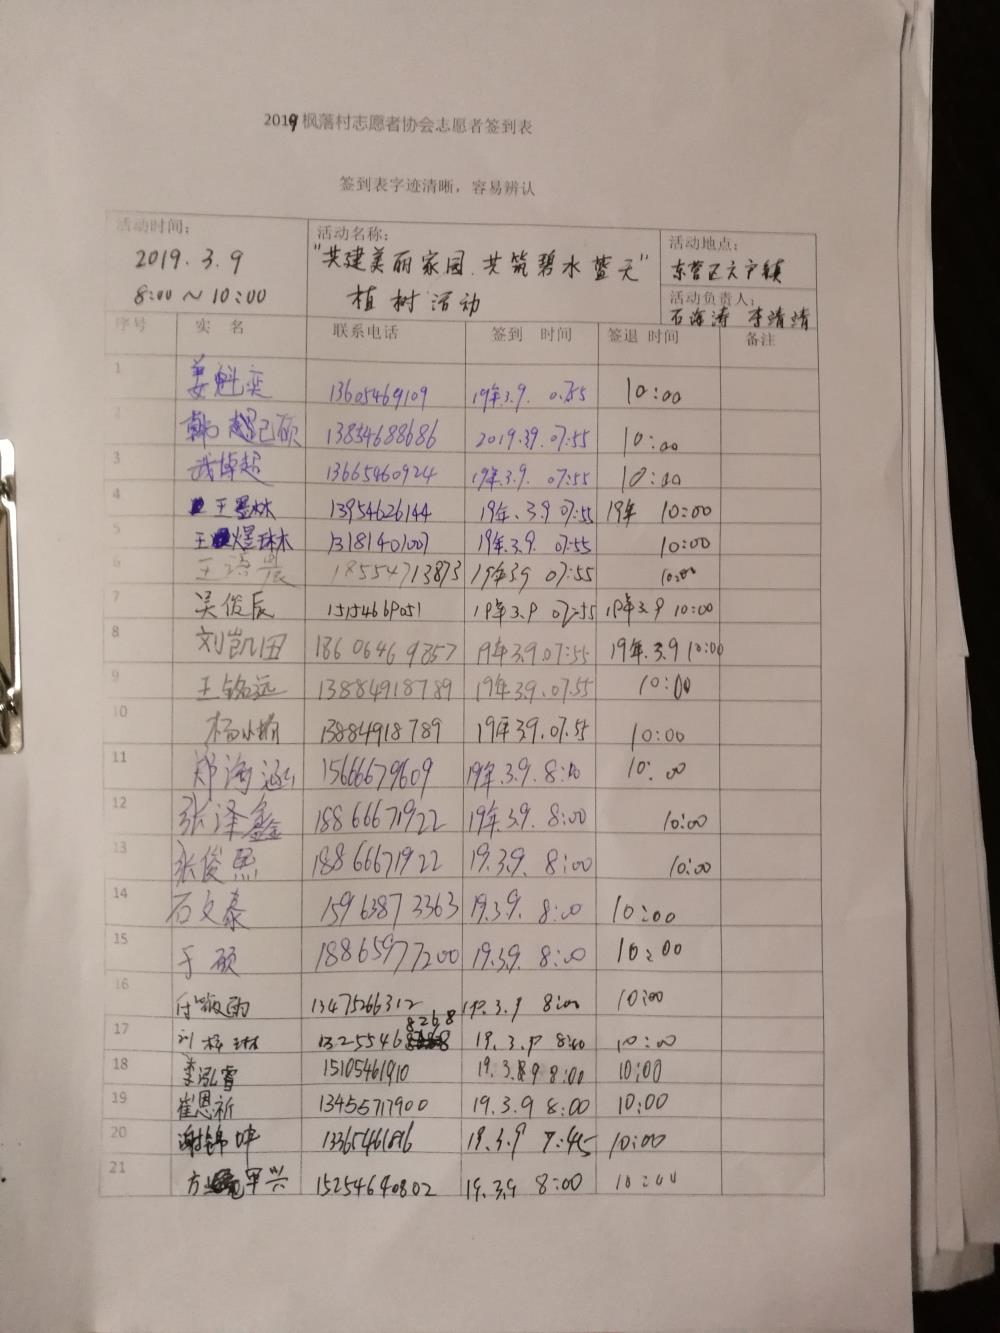 2019枫落村志愿者协会志愿者签到表
签到表字迹清晰，容易辨认
活动时间： 活动名称： 活动地点：
2019.3.9 "共建美丽家园.共筑碧水蓝天" 东营区六户镇
8:00～10:00 植树活动 活动负责人：
石海涛 李靖靖
序号 实 名 联系电话 签到 时间 签退 时间 备注
1 姜魁奕 13605469109 19年.3.9. 0.755 10:00
韩 硕 13854688686 2019.3.9. 07:55 10:00
3 超 13665460924 19年.3.9. 07:55 10:00
4 王墨林 13954626144 19年.3.9 07:55 19年 10:00
5 王 琳 13181401007 19年.3.9. 07:55 10:00
6 王 晨 18554713873 19年3.9 07:55 10:00
7 吴俊辰 15154669051 19年3.9 07:55 19年3.9 10:00
8 刘凯田 18606469357 19年3.9.07:55 19年.3.9 10:00
9 王铭远 13884918789 19年3.9.07.55 10:00
10 杨 13884918789 19年3.9.07.55 10:00
11 郑海涵 15666679609 19年.3.9. 8:10 10:00
12 张泽鑫 18866671922 19年.3.9. 8:00 10:00
13 张俊熙 18866671922 19.3.9. 8:00 10:00
14 石文泰 15963873363 19.3.9. 8:00 10:00
15 于硕 18865977200 19.3.9. 8:00 10:00
16 付 雨 13475266312 19.3.9 8:00 10:00
17 刘梓琳 13255468268 19.3.9 8:00 10:00
18 李泓睿 15105461910 19.3.8 9 8:00 10:00
19 崔恩祈 13455717900 19.3.9 8:00 10:00
20 谢锦坤 13365461816 19.3.9 7:45 10:00
21 方 兴 15254640802 19.3.9 8:00 10:00